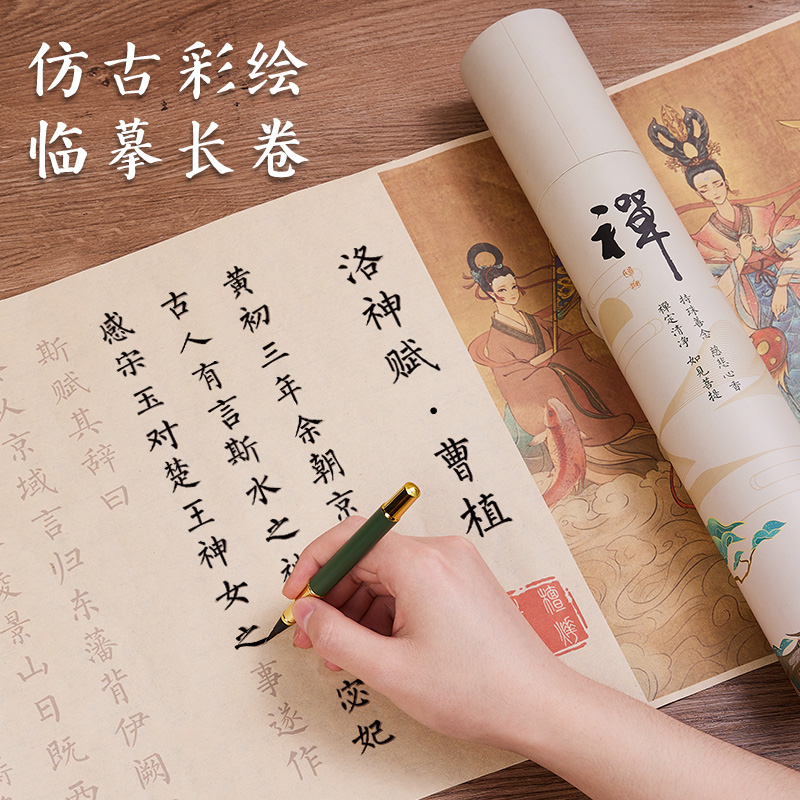 仿古彩绘
临摹长卷
洛神赋·曹植
黄初三年余朝京
古人有言斯水之
宓妃
感宋玉对楚王神女之事遂作
斯赋其辞曰
京域言归东藩背伊阙
陵景山日既西
禪
持珠善念 慈悲心香
禪定清净 如見菩提